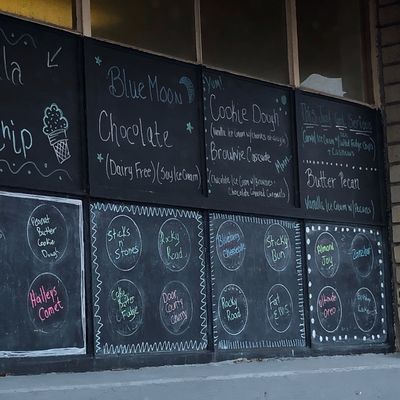 lla
chip
Blue Moon
Chocolate
(Dairy Free) (Soy Ice Cream)
Yum!
Cookie Dough
(Vanilla Ice Cream w/ Chunks of Dough)
Brownie Cascade
(Vanilla Ice Cream w/ Brownie
Chocolate Caramel)
This Just Got Serious
(Caramel Ice Cream w/ Salted Fudge
+ Cashews)
Butter Pecan
(Vanilla Ice Cream w/ Pecans)
Peanut
Butter
Cookie
Dough
Halleys
Comet
Sticks
n
Stones
Rocky
Road
Cake
Batter
Fudge
Door
County
Cherry
Blueberry
Cheesecake
Sticky
Bun
Rocky
Road
Fat
Elvis
Almond
Joy
Ultimate
Oreo